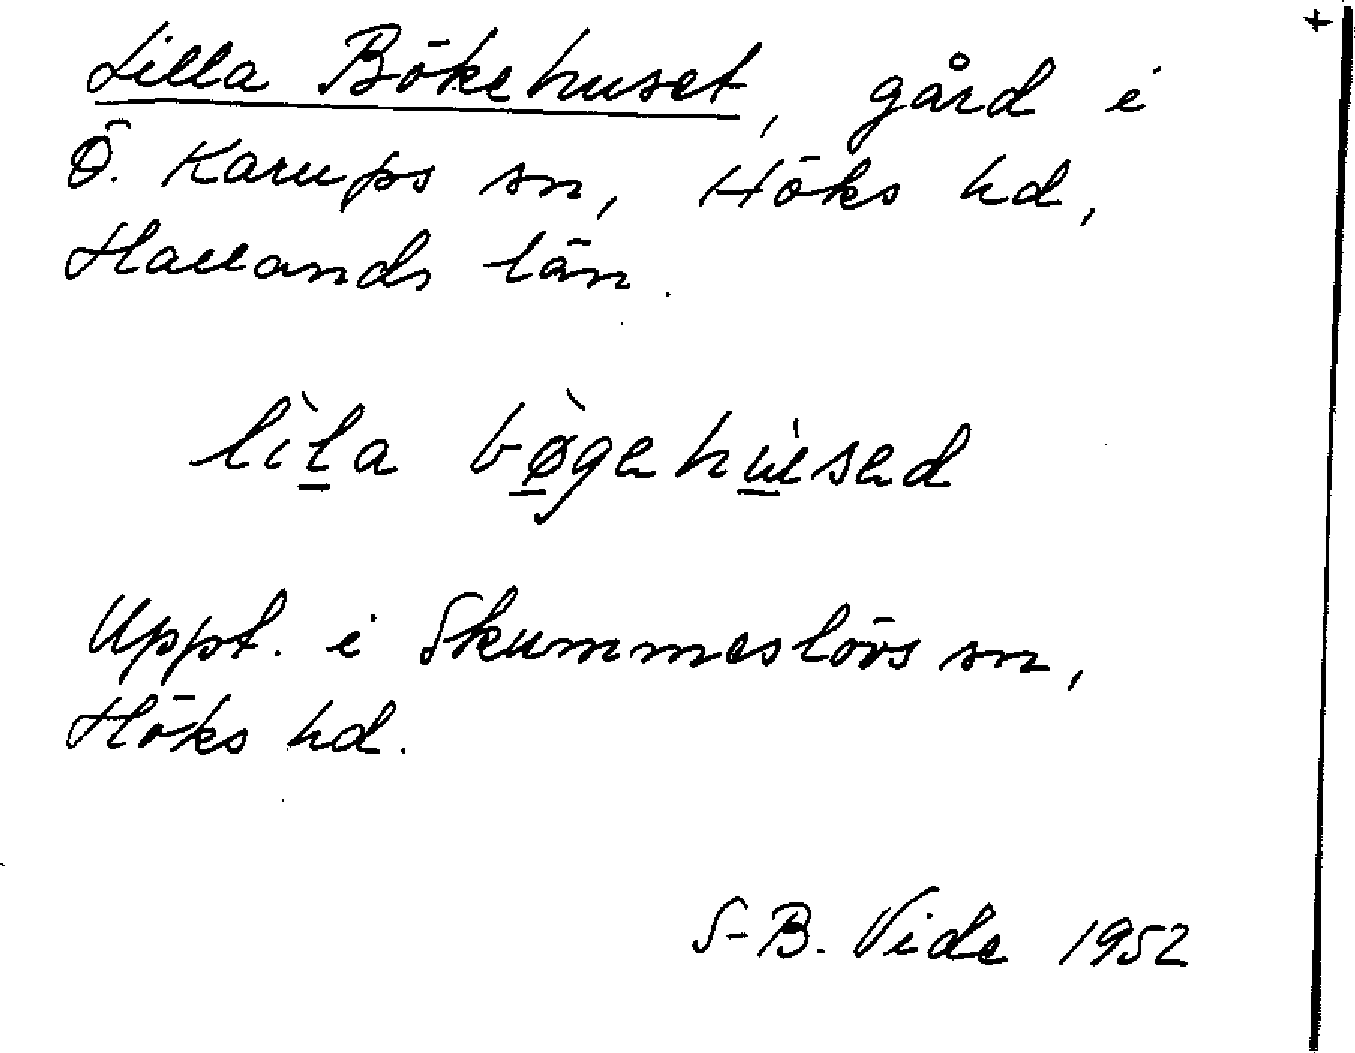 Lilla Bökehuset, gård i
Ö. Karups sn, Höks hd,
Hallands län.
lìla bø̀gehu̇sed
Uppt. i Skummeslövs sn,
Höks hd.
S-B. Vide 1952